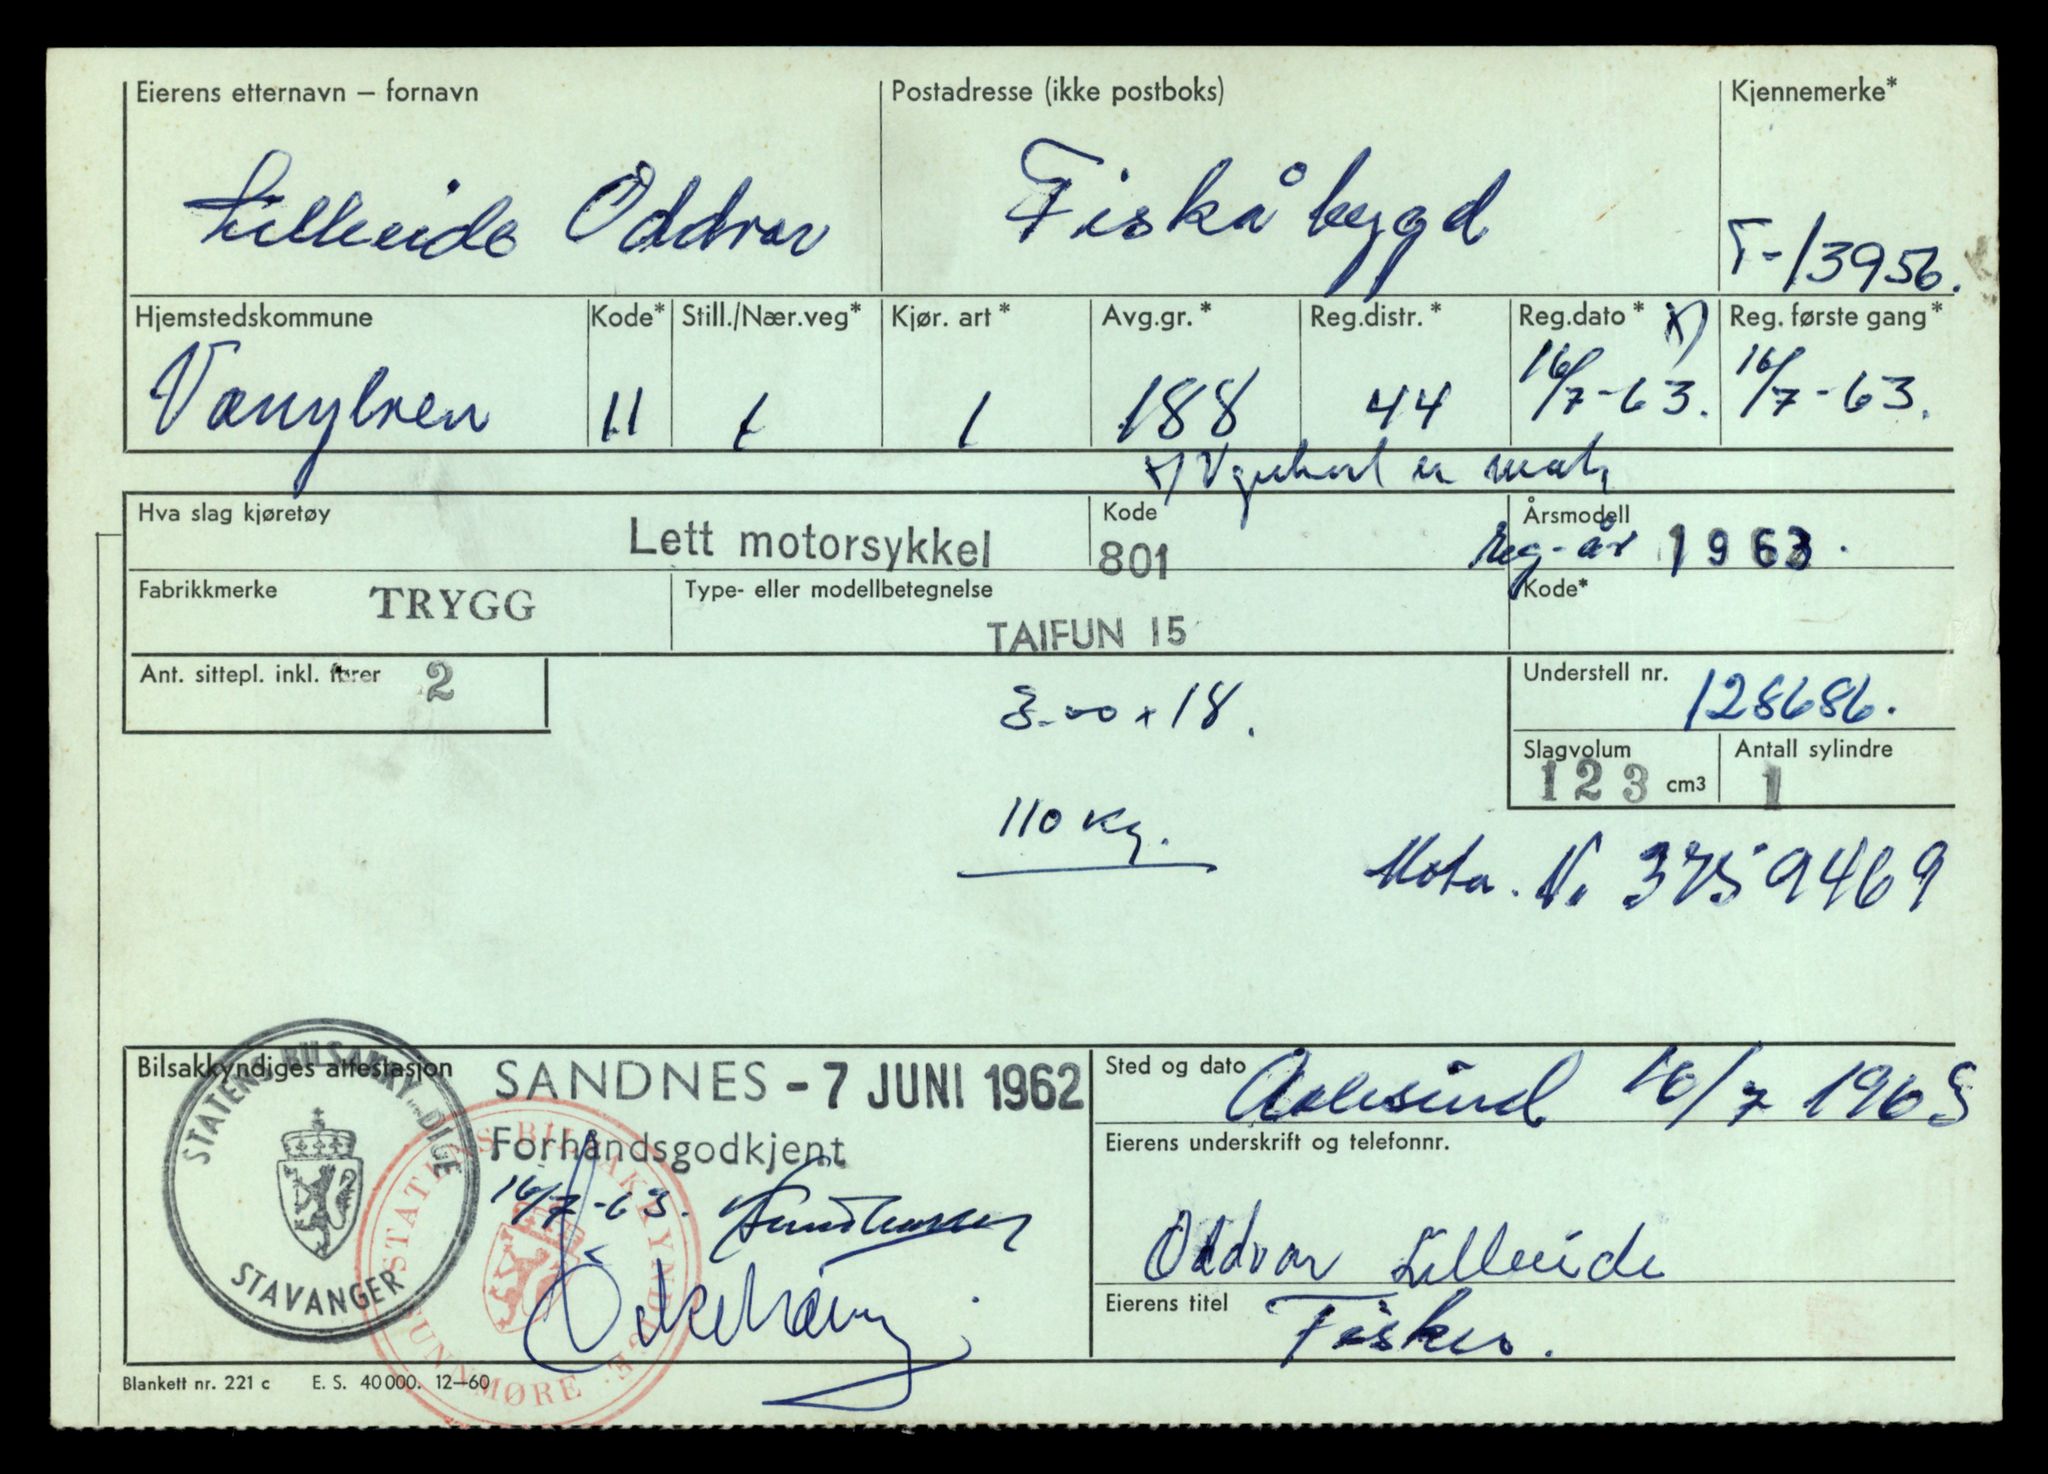 Eierens etternavn – fornavn
Postadresse (ikke postboks)
Kjennemerke*
Lilleeide Oddvar
Fiskåbygd
T-13956.
Hjemstedskommune
Kode*
Still./Nær.veg*
Kjør. art*
Avg.gr.*
Reg.distr.*
Reg.dato* x)
Reg. første gang*
Vanylven
11
1
1
188
44
16/7-63.
16/7-63.
x) Vgebort er mot,
Hva slag kjøretøy
Lett motorsykkel
Kode
801
Årsmodell
Reg-år 1963.
Fabrikkmerke
TRYGG
Type- eller modellbetegnelse
TAIFUN 15
Kode*
Ant. sittepl. inkl. fører 2
3-00 x 18.
Understell nr.
128686.
Slagvolum
123 cm3
Antall sylindre
1
110 kg.
Motor. Nr 3759469
Bilsakkyndiges attestasjon
STATENS BILSAKKYNDIGE
STAVANGER
SANDNES - 7 JUNI 1962
Forhåndsgodkjent
STATENS BILSAKKYNDIGE
SUNNMØRE
16/7-63.
Sted og dato
Aalesund 16/7 1963
Eierens underskrift og telefonnr.
Oddvar Lilleeide
Eierens titel
Fisker.
Blankett nr. 221 c E. S. 40000. 12–60